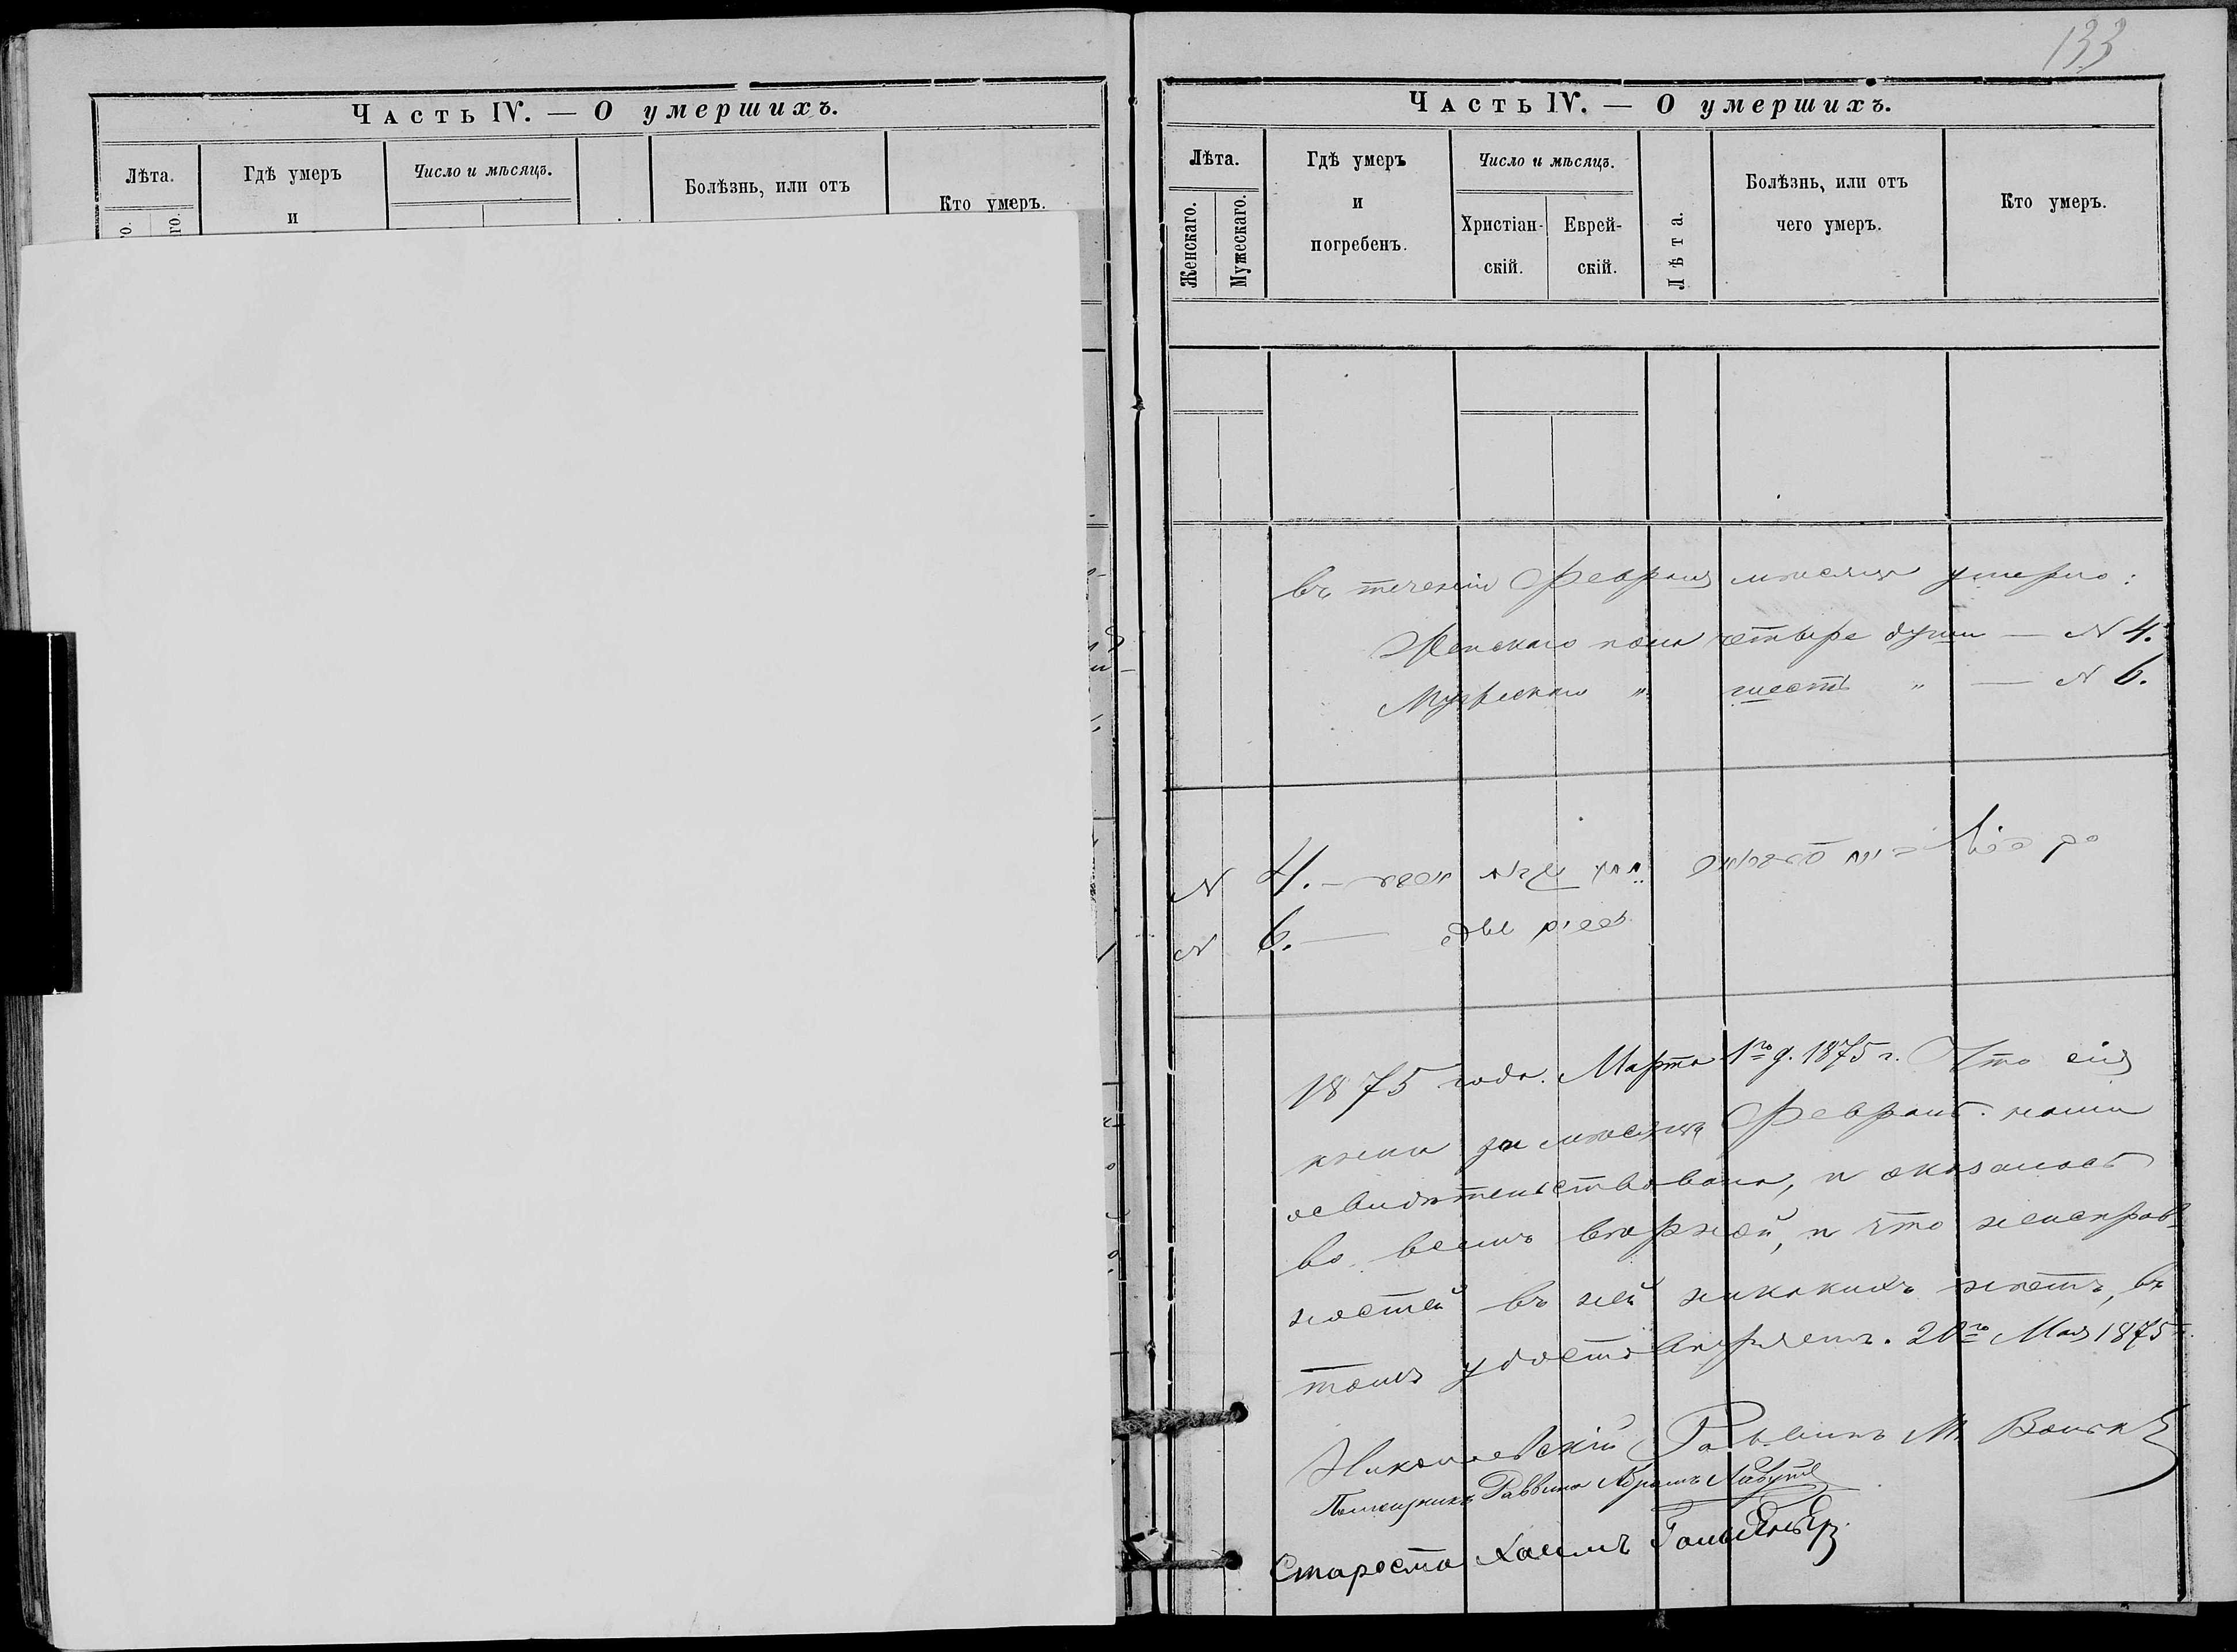 133
Часть IV. — О умершихъ.
Лѣта.
Гдѣ умеръ
и
Число и мѣсяцъ.
Болѣзнь, или отъ
Кто умеръ.
го.
Часть IV. — О умершихъ.
Лѣта.
Женскаго.
Мужескаго.
Гдѣ умеръ
и
погребенъ.
Число и мѣсяцъ.
Христіан-
скій.
Еврей-
скій.
Лѣта.
Болѣзнь, или отъ
чего умеръ.
Кто умеръ.
въ теченіи Февраля мѣсяца умерло:
Женскаго пола четыре души — N 4.
Мужескаго " шесть " — N 6.
N 4. —
N 6. —
1875 года. Марта 1го д. 1875 г. Что сія
книга за мѣсяцъ Февраль нами
освидѣтельствована, и оказалась
во всемъ вѣрной, и что неисправ-
ностей въ ней никакихъ нѣтъ, въ
томъ удостовѣряемъ. 20го Мая 1875 г.
Николаевскій Раввинъ М.
Помощникъ Раввина Абрамъ
Староста Хаимъ